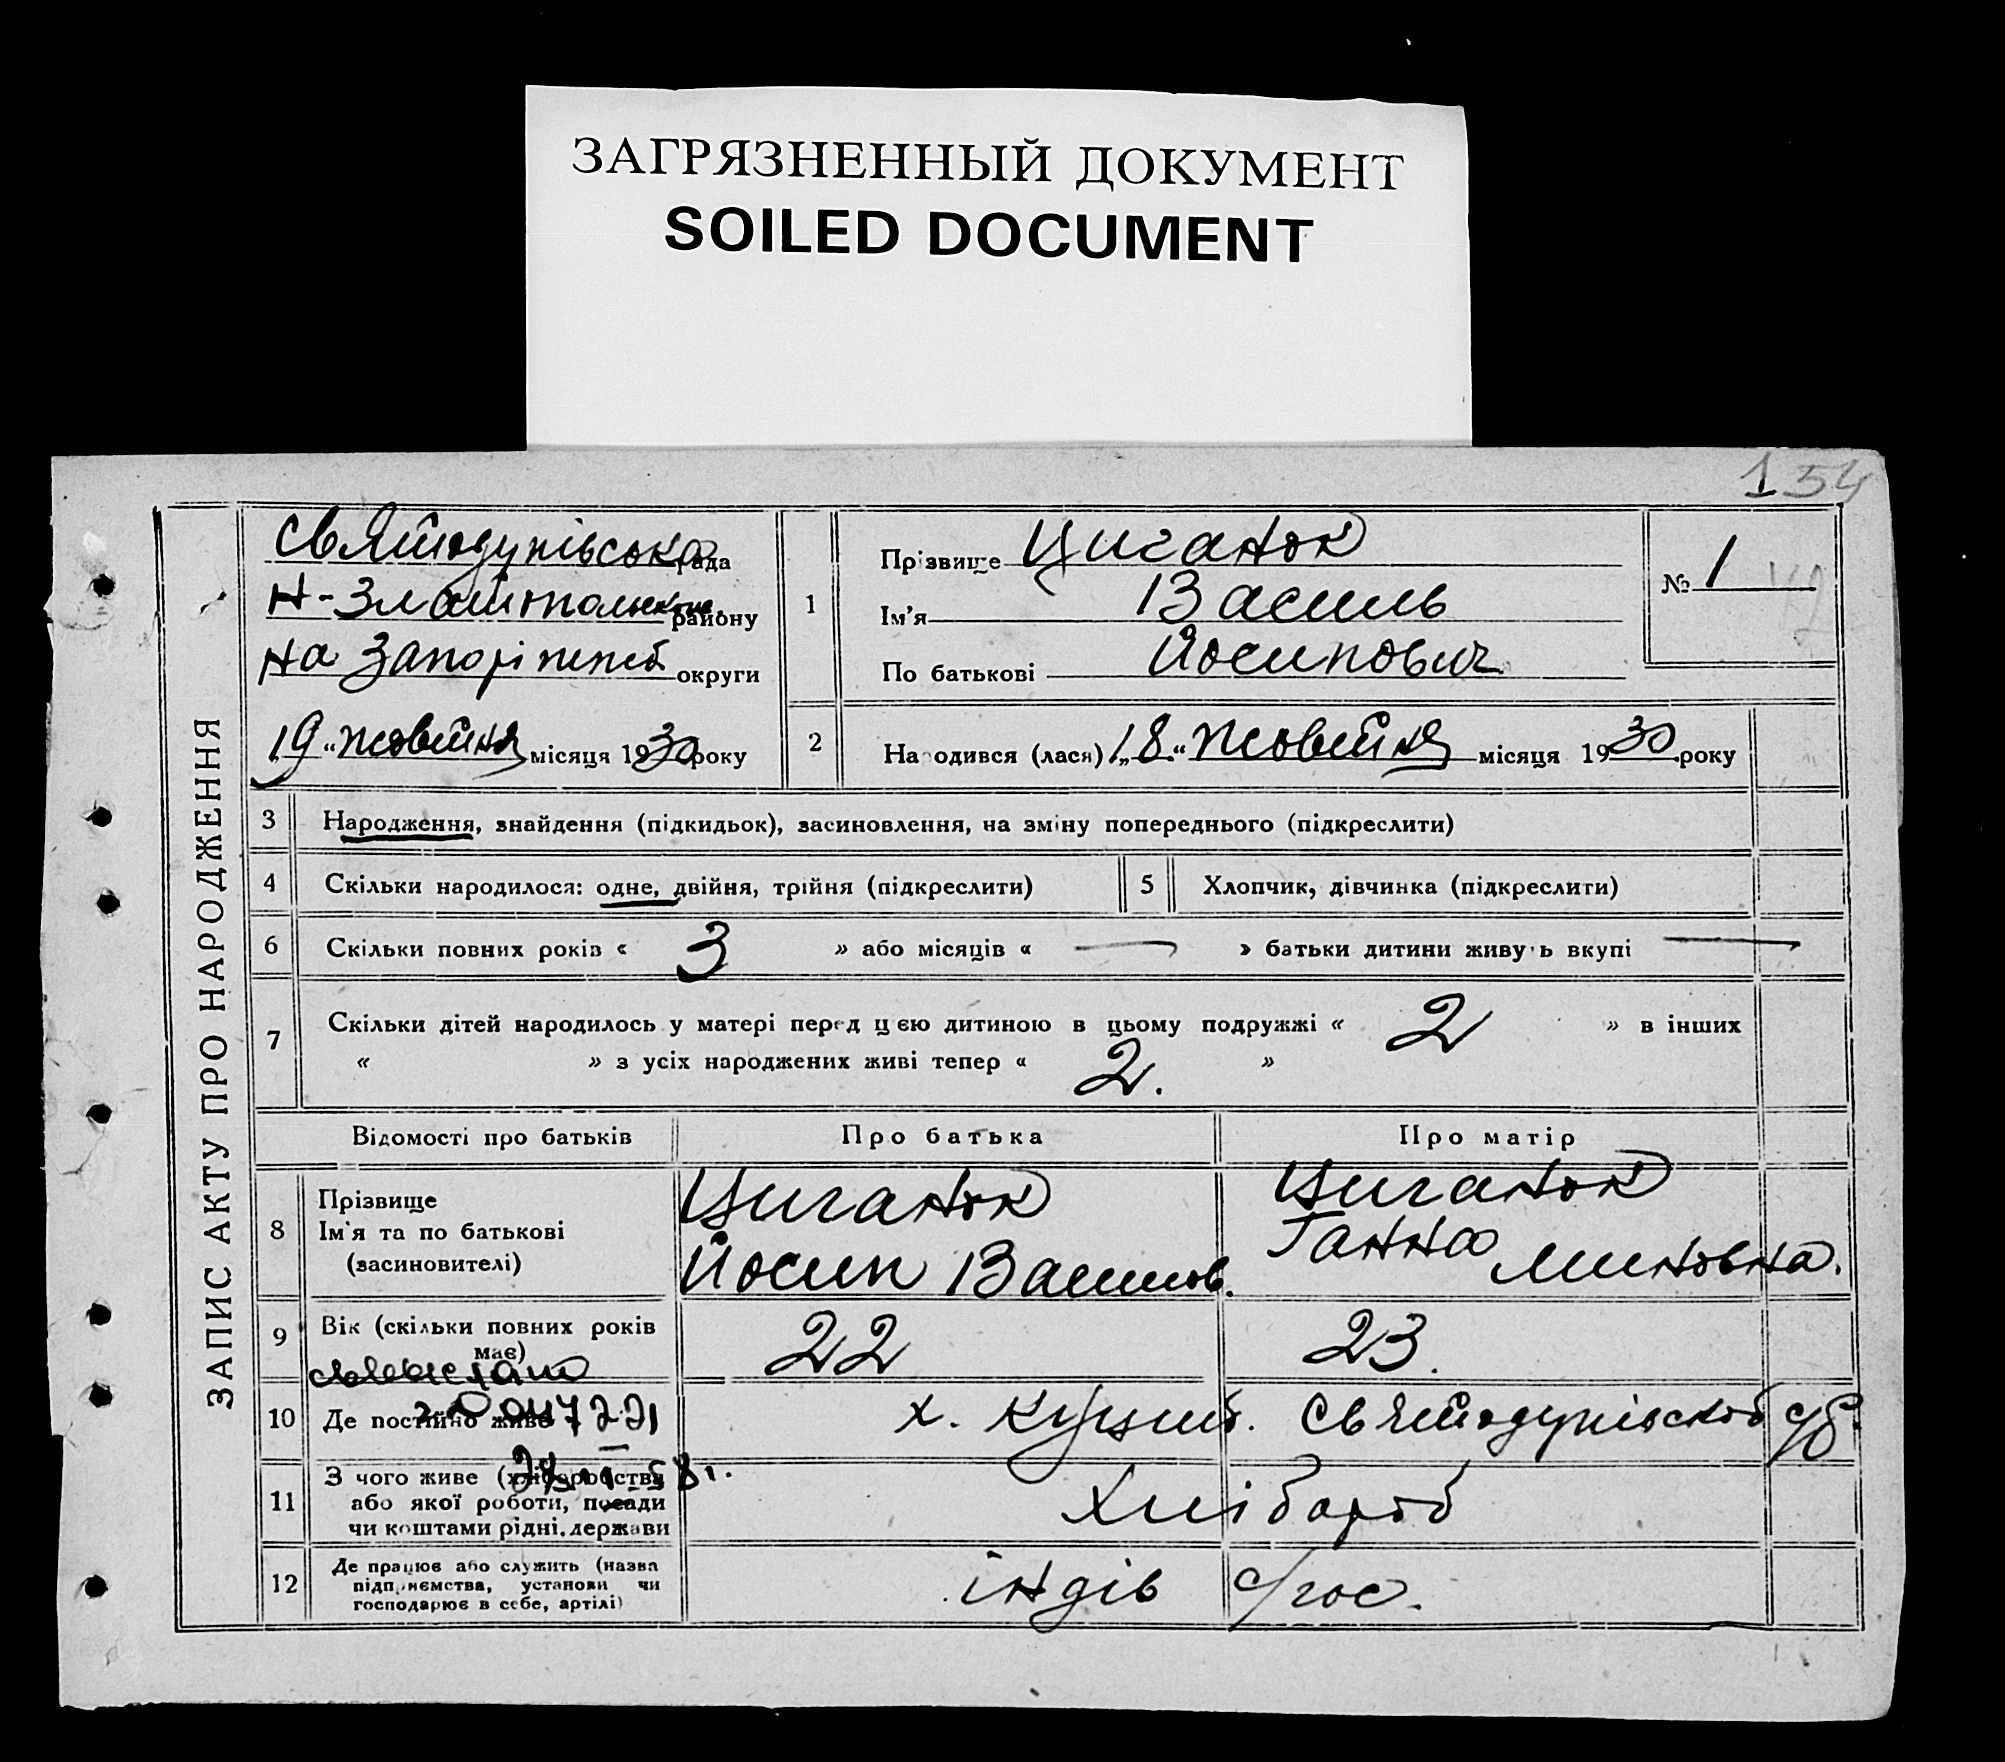 ЗАГРЯЗНЕННЫЙ ДОКУМЕНТ
SOILED DOCUMENT
154
ЗАПИС АКТУ ПРО НАРОДЖЕННЯ
Святодухівська рада
району
на округи
19 „ жовтня місяця 1930 року
1
Прізвище Циганок
Ім'я Василь
По батькові Йосипович
№ 1
2
Народився (лася) „18“ жовтня місяця 1930 року
3 Народження, знайдення (підкидьок), засиновлення, на зміну попереднього (підкреслити)
4 Скільки народилося: одне, двійня, трійня (підкреслити)
5 Хлопчик, дівчинка (підкреслити)
6 Скільки повних років « 3 » або місяців « — » батьки дитини живуть вкупі —
7 Скільки дітей народилось у матері перед цією дитиною в цьому подружжі « 2 » в інших
« » з усіх народжених живі тепер « 2. »
Відомості про батьків Про батька Про матір
8 Прізвище Циганок Циганок
Ім'я та по батькові Йосип Васильов. Ганна Миновна.
(засиновителі)
9 Вік (скільки повних років має) 22 23.
10 Де постійно живе х. Святодухівской с/р.
11 З чого живе (хліборобства
або якої роботи, посади
чи коштами рідні, держави
Хлібороб
12 Де працює або служить (назва
підприємства, установи чи
господарює в себе, артілі)
індів с/гос.